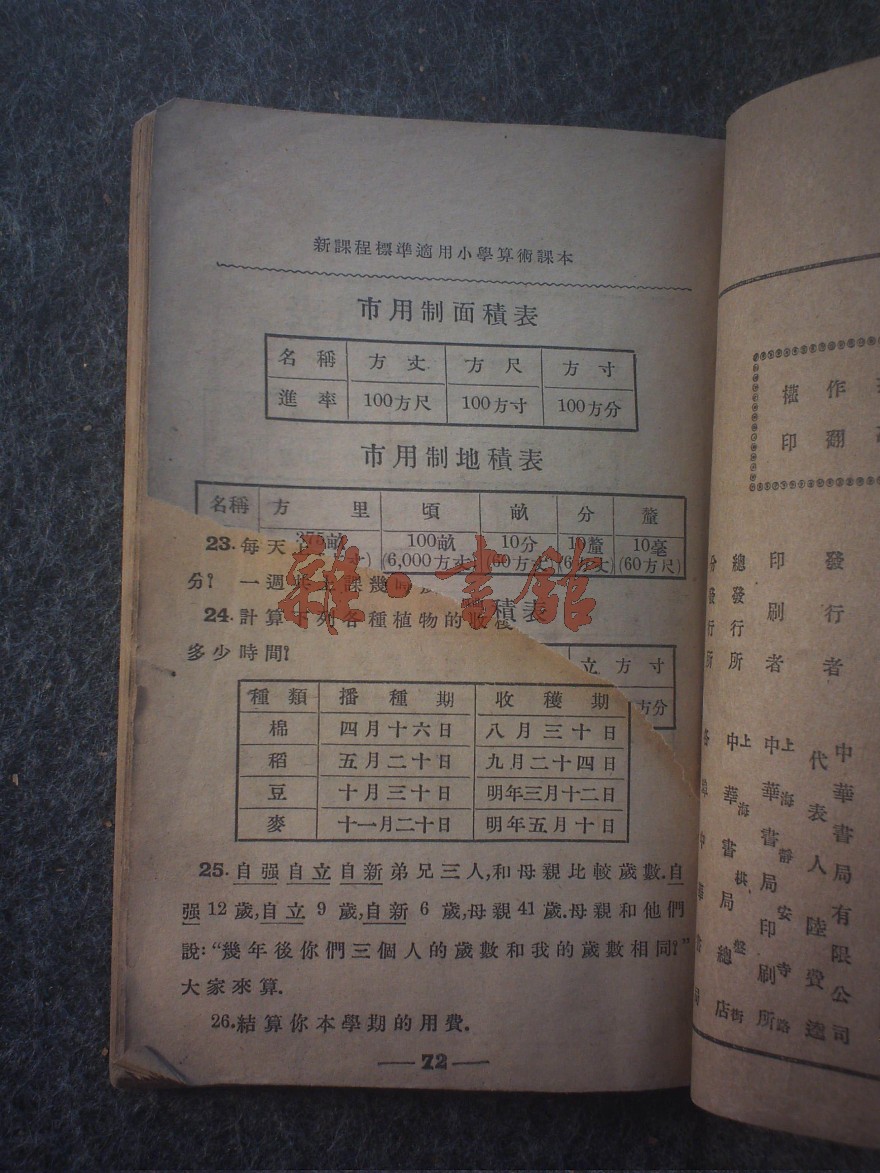 新課程標準適用小學算術課本
市用制面積表
名稱 方丈 方尺 方寸
進率 100方尺 100方寸 100方分
市用制地積表
名稱 方里 頃 畝 分 釐
375畝 100畝 10分 10釐 10毫
(6,000方丈) (60方丈) (6方丈) (60方尺)
23.每天上
分?一週共上課幾時
積表
24.計算下列各種植物的收穫
多少時間?
立方寸
方分
種類 播種期 收穫期
棉 四月十六日 八月三十日
稻 五月二十日 九月二十四日
豆 十月三十日 明年三月十二日
麥 十一月二十日 明年五月十日
25.自强自立自新弟兄三人,和母親比較歲數.自
强12歲,自立9歲,自新6歲,母親41歲.母親和他們
說:“幾年後你們三個人的歲數和我的歲數相同?”
大家來算.
26.結算你本學期的用費.
—72—
雜·書館
作
權
翻
印
發行者
印刷者
總發行所
分發行所
中華書局有限公司
代表人陸費逵
上海靜安寺路
中華書局印刷所
上海棋盤街
中華書局總店